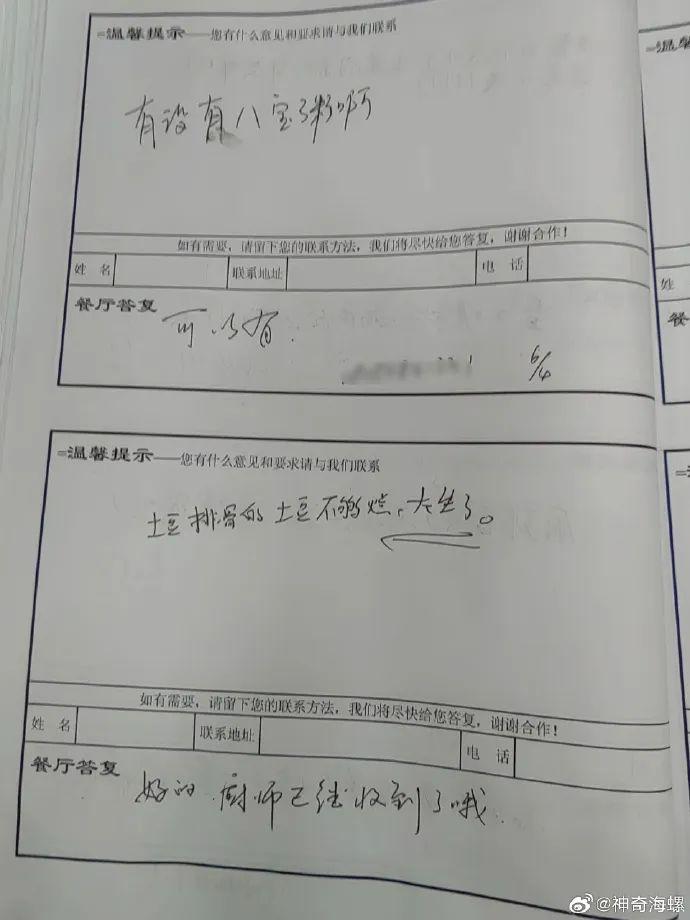 =温馨提示——您有什么意见和要求请与我们联系
有没有八宝粥啊
如有需要，请留下您的联系方法，我们将尽快给您答复，谢谢合作！
姓 名 联系地址 电 话
餐厅答复
可以有.
6/4
=温馨提示——您有什么意见和要求请与我们联系
土豆排骨的土豆不够烂，太生了。
如有需要，请留下您的联系方法，我们将尽快给您答复，谢谢合作！
姓 名 联系地址 电 话
餐厅答复
好的 厨师已经收到了哦.
=温馨
姓
餐厅
@神奇海螺